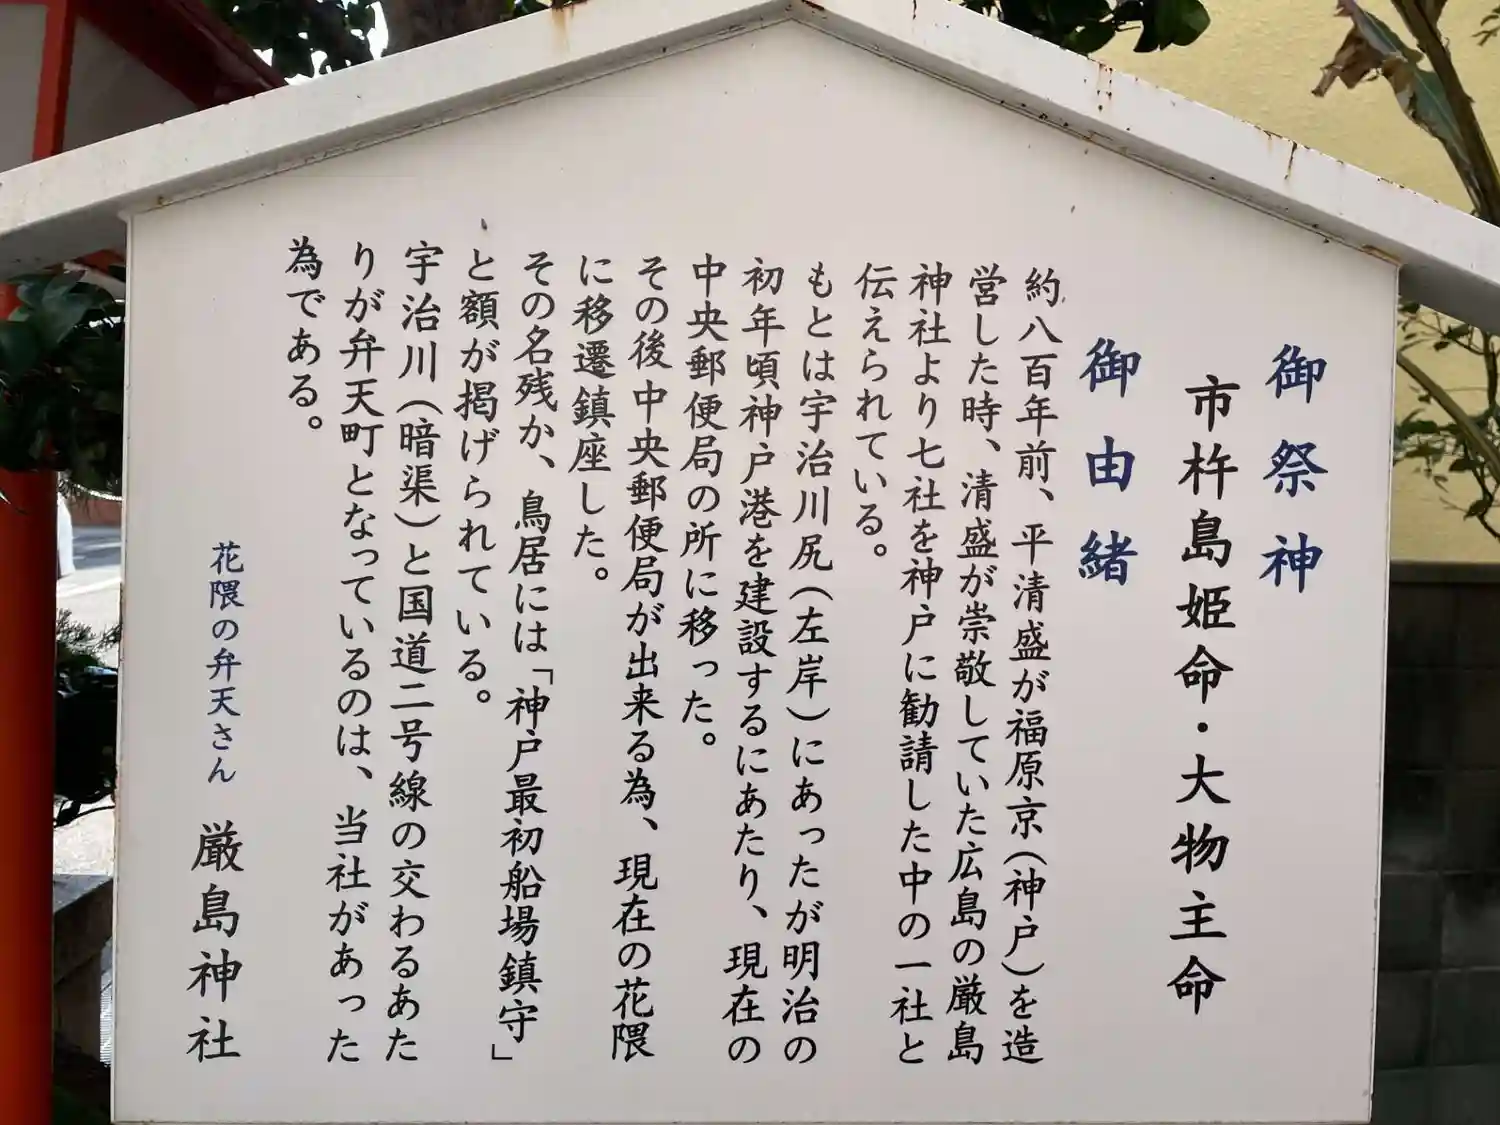 御祭神
市杵島姫命・大物主命
御由緒
約八百年前、平清盛が福原京(神戸)を造
営した時、清盛が崇敬していた広島の厳島
神社より七社を神戸に勧請した中の一社と
伝えられている。
もとは宇治川尻(左岸)にあったが明治の
初年頃神戸港を建設するにあたり、現在の
中央郵便局の所に移った。
その後中央郵便局が出来る為、現在の花隈
に移遷鎮座した。
その名残か、鳥居には「神戸最初船場鎮守」
と額が掲げられている。
宇治川(暗渠)と国道二号線の交わるあた
りが弁天町となっているのは、当社があった
為である。
花隈の弁天さん 厳島神社